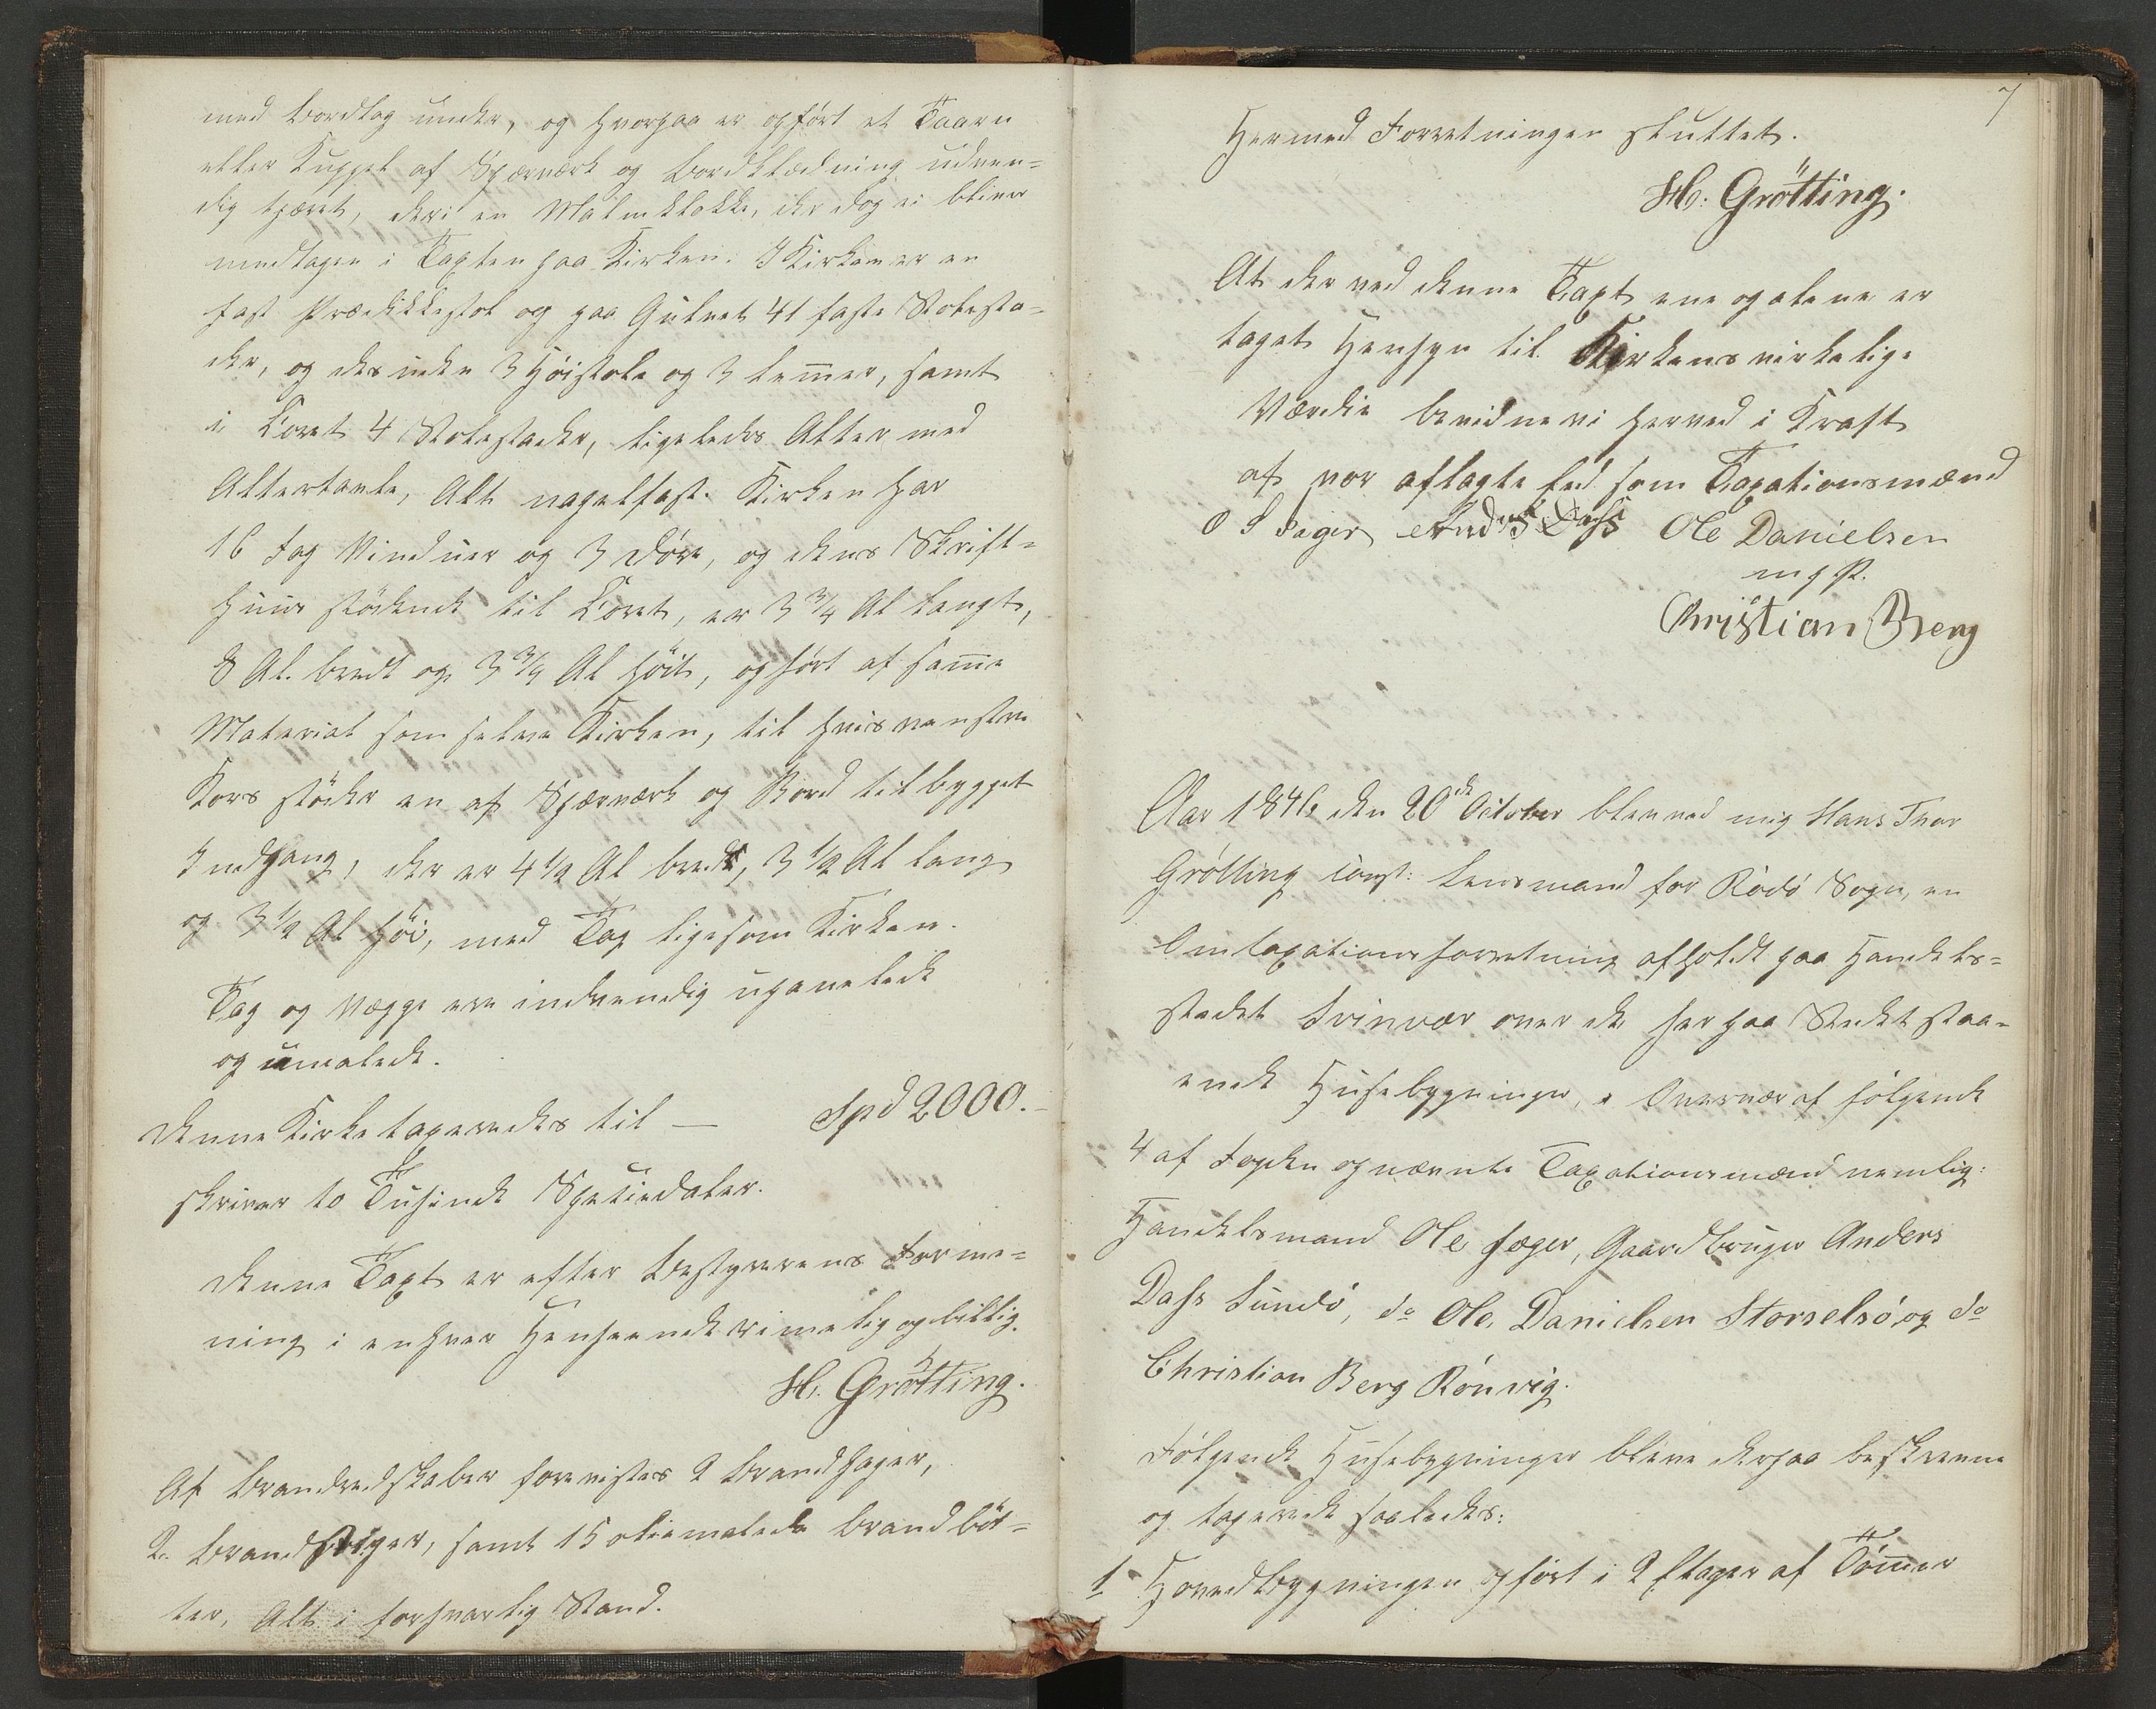 med Bordtag under, og hvorpaa er opført et Taarn
eller Kuppel af Spærværk og Bordklædning udven=
dig tjæret, deri en Malmklokke, der dog ei bliver
medtagen i Taxten paa Kirken. I Kirken er en
fast Prædikkestol og paa Gulvet 41 faste Stolesta=
der, og desuden 3 Høistole og 3 Lemmer, samt
i Coret 4 Stolestader, ligeledes Alter med
Altertavle, Alt nagelfast. Kirken har
16 Fag Vinduer og 3 Døre, og dens Skrift=
huus stødende til Coret, er 3 3/4 Al langt,
8 Al. bredt og 3 3/4 Al høit, opført af samme
Material som selve Kirken, til hvis venstre
Kors støder en af Spærværk og Bord tilbygget
Indgang, der er 4 1/2 Al bred, 3 1/2 Al lang
og 3 1/2 Al høi, med Tag ligesom Kirken.
Tag og Vægge ere indvendig upanelede
og umalede.
Denne Kirke taxeredes til — Spd 2000.-
skriver to Tusinde Speciedaler.
Denne Taxt er efter Bestyrerens Forme=
ning i enhver Henseende rimelig og billig.
H. Grøtting.
Af Brandredskaber forevistes 2 Brandhager,
2 Brandstiger, samt 15 oliemalede Brandbøt=
ter, Alt i forsvarlig Stand.
7
Hermed Forretningen sluttet.
H. Grøtting.
At der ved denne Taxt ene og alene er
taget Hensyn til Kirkens virkelige
Værdie bevidne vi herved i Kraft
af vor aflagte Eed som Taxationsmænd
O S Jæger Anders Dass Ole Danielsen
m f P.
Christian Berg
Aar 1846 den 20de October blev ved mig Hans Thor
Grøtting const: Lensmand for Rødø Sogn, en
Omtaxationsforretning afholdt paa Handels=
stedet Svinvær over de her paa Stedet staa=
ende Husebygninger, i Overvær af følgende
4 af Fogden opnævnte Taxationsmænd nemlig:
Handelsmand Ole Jæger, Gaardbruger Anders
Dass Sundø, do Ole Danielsen Storselsø og do
Christian Berg Rønvig.
Følgende Husebygninger bleve derpaa beskrevne
og taxerede saaledes:
1 Hovedbygningen opført i 2 Etager af Tømmer